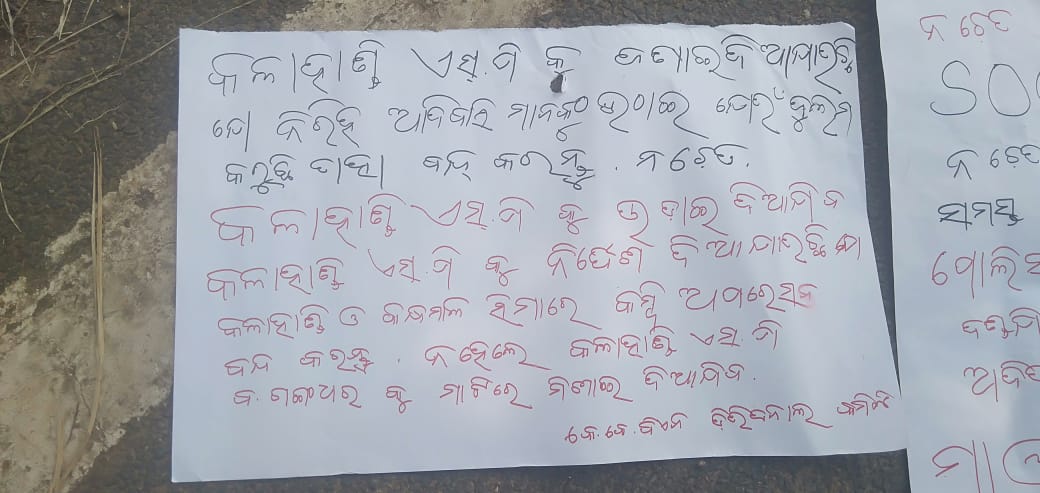 କଳାହାଣ୍ଡି ଏସ୍.ପି କୁ ଜଣାଇଦିଆଯାଉଛି
ଯେ ନିରିହ ଆଦିବାସି ମାନଙ୍କୁ ଉଠାଇ ଯେଉଁ ଜୁଲମ
କରୁଛି ତାହା ବନ୍ଦ କରନ୍ତୁ. ନଚେତ୍.
କଳାହାଣ୍ଡି ଏସ୍.ପି କୁ ଉଡ଼ାଇ ଦିଆଯିବ
କଳାହାଣ୍ଡି ଏସ୍.ପି କୁ ନିର୍ଦ୍ଦେଶ ଦିଆଯାଉଛି ଯେ
କଳାହାଣ୍ଡି ଓ କନ୍ଧମାଳ ସିମାରେ କମ୍ବିଂ ଅପରେସନ
ବନ୍ଦ କରନ୍ତୁ. ନହେଲେ କଳାହାଣ୍ଡି ଏସ୍.ପି
ବ. ଗଙ୍ଗାଧର କୁ ମାଟିରେ ମିଶାଇ ଦିଆଯିବ.
କେ.କେ.ବିଏନ ଡିଭିଜନାଲ କମିଟି
ନଚେତ
ନଚେତ
ସମସ୍ତ
ପୋଲିସ
ଆଦିବ